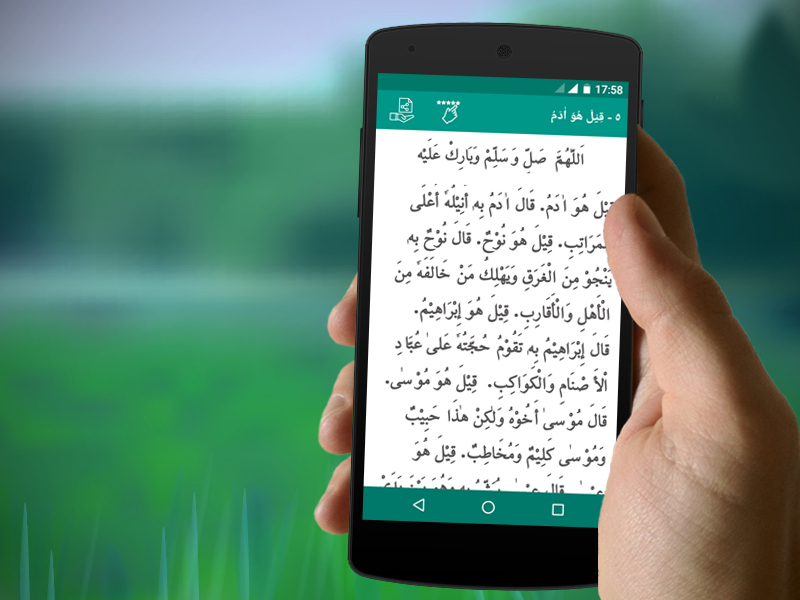 17:58
٥ - قِيْلَ هُوَ اٰدَمُ
اَللّٰهُمَّ صَلِّ وَسَلِّمْ وَبَارِكْ عَلَيْه
قِيْلَ هُوَ اٰدَمُ. قَالَ اٰدَمُ بِهِ أُنِيْلُهُ أَعْلَى
الْمَرَاتِبِ. قِيْلَ هُوَ نُوْحٌ. قَالَ نُوْحٌ بِهِ
يَنْجُوْ مِنَ الْغَرَقِ وَيَهْلِكُ مَنْ خَالَفَهُ مِنَ
الْأَهْلِ وَالْأَقَارِبِ. قِيْلَ هُوَ إِبْرَاهِيْمُ.
قَالَ إِبْرَاهِيْمُ بِهِ تَقُوْمُ حُجَّتُهُ عَلىٰ عُبَّادِ
اْلأَصْنَامِ وَالْكَوَاكِبِ. قِيْلَ هُوَ مُوْسٰى.
قَالَ مُوْسىٰ أَخُوْهُ وَلٰكِنْ هٰذَا حَبِيْبٌ
وَمُوْسٰى كَلِيْمٌ وَمُخَاطِبٌ. قِيْلَ هُوَ